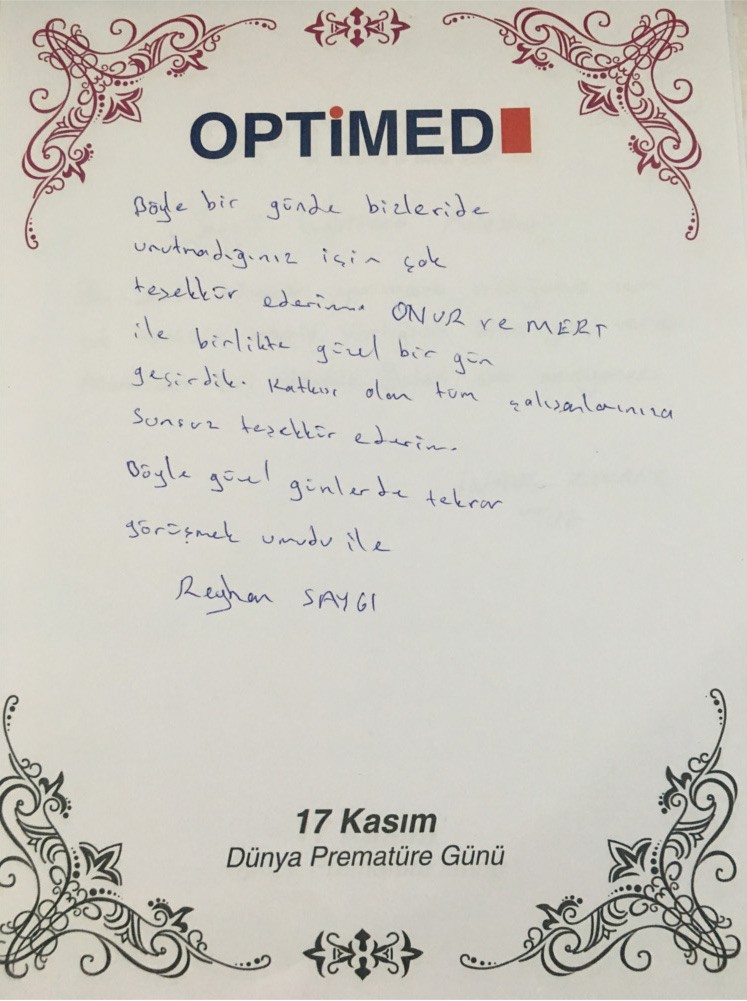 OPTiMED
Böyle bir günde bizleride
unutmadığınız için çok
teşekkür ederim. ONUR ve MERT
ile birlikte güzel bir gün
geçirdik. Katkısı olan tüm çalışanlarınıza
Sonsuz teşekkür ederim.
Böyle güzel günlerde tekrar
görüşmek umudu ile
Reyhan SAYGI
17 Kasım
Dünya Prematüre Günü